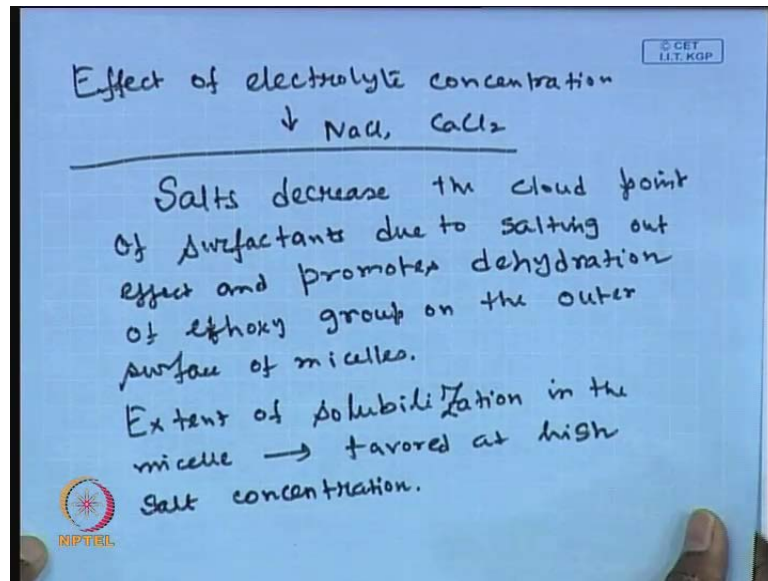 © CET
I.I.T. KGP
Effect of electrolyte concentration
↓ NaCl, CaCl2
Salts decrease the cloud point
of surfactants due to salting out
effect and promotes dehydration
of ethoxy group on the outer
surface of micelles.
Extent of solubilization in the
micelle → favored at high
salt concentration.
NPTEL